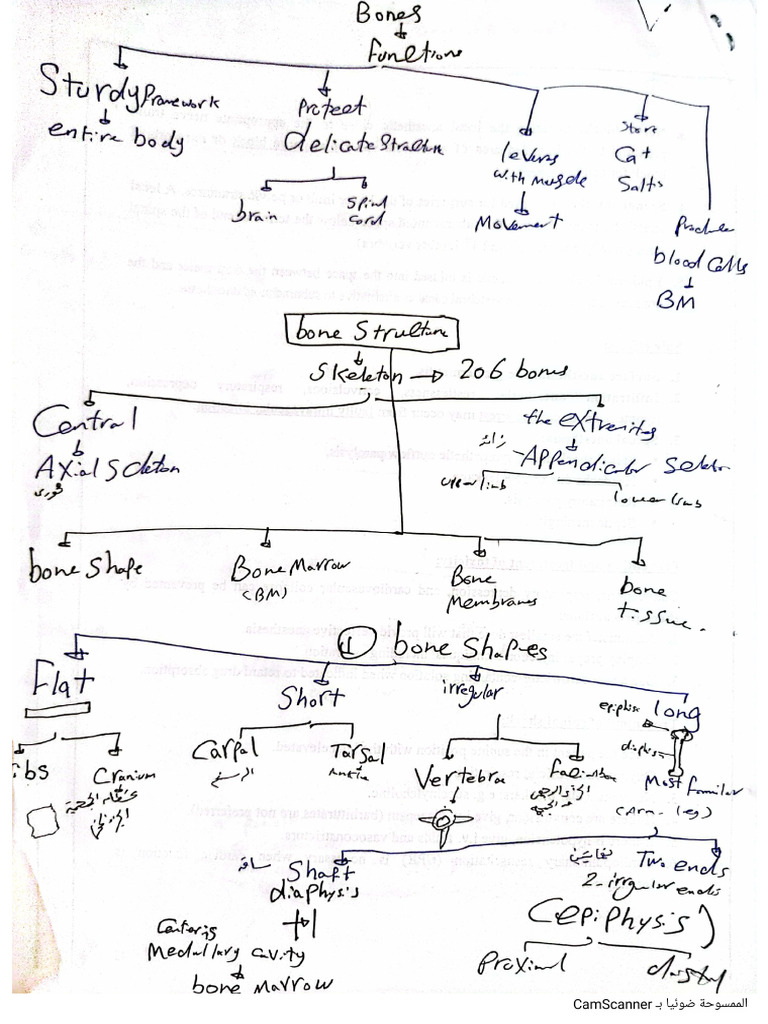 Bones
Functions
Sturdy Framework
entire body
Protect
delicate Structure
brain
Spinal
cord
levers
with muscle
Movement
Store
Ca+
Salts
Produce
blood Cells
BM
bone Structure
Skeleton → 206 bones
Central
Axial Skleton
محورى
the extremites
Appendicular Seleton
upper limb
lower limb
bone Shape
Bone Marrow
(BM)
Bone
Membranes
bone
tissue.
1 bone Shapes
Flat
Short
irregular
long
ibs
Cranium
Carpal
Tarsal
Vertebra
epiphise
diaphise
Most familiar
(arm - leg)
Shaft
diaphysis
ساق
Medullary cavity
bone Marrow
Two ends
2-irregular ends
(epiphysis)
Proximal
distal
الممسوحة ضوئيا بـ CamScanner